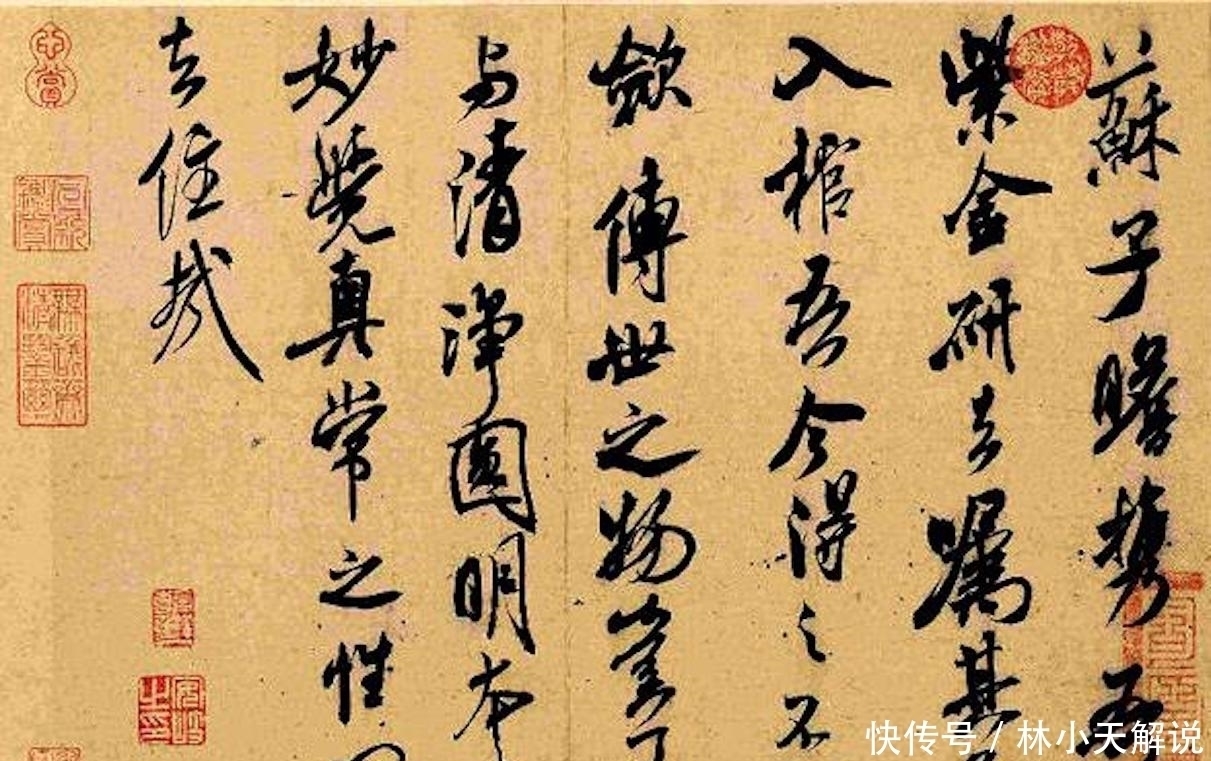 蘇子瞻攜吾
紫金研去囑其
入棺吾今得之不
斂傳世之物豈
与清淨圓明本
妙覺真常之性
去住哉
快传号 / 林小天解说